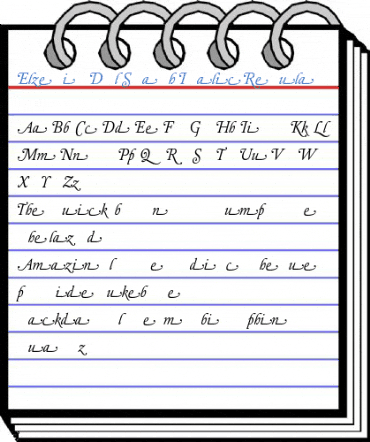 Elze i D l S a b I alic Re ula
Aa Bb Cc Dd Ee F G Hh Ii Kk Ll
Mm Nn Pp Q R S T Uu V W
X Y Zz
The uick b n ump e
he laz d
Amazin l e di c he ue
p ide uke b e
ackda l e m bi phin
ua z